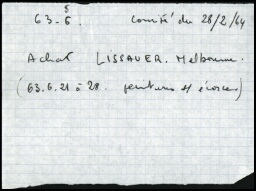 63-6. Comité du 28/2/64
5
Achat LISSAUER. Melbourne.
(63.6.21 à 28. peintures et écorces)